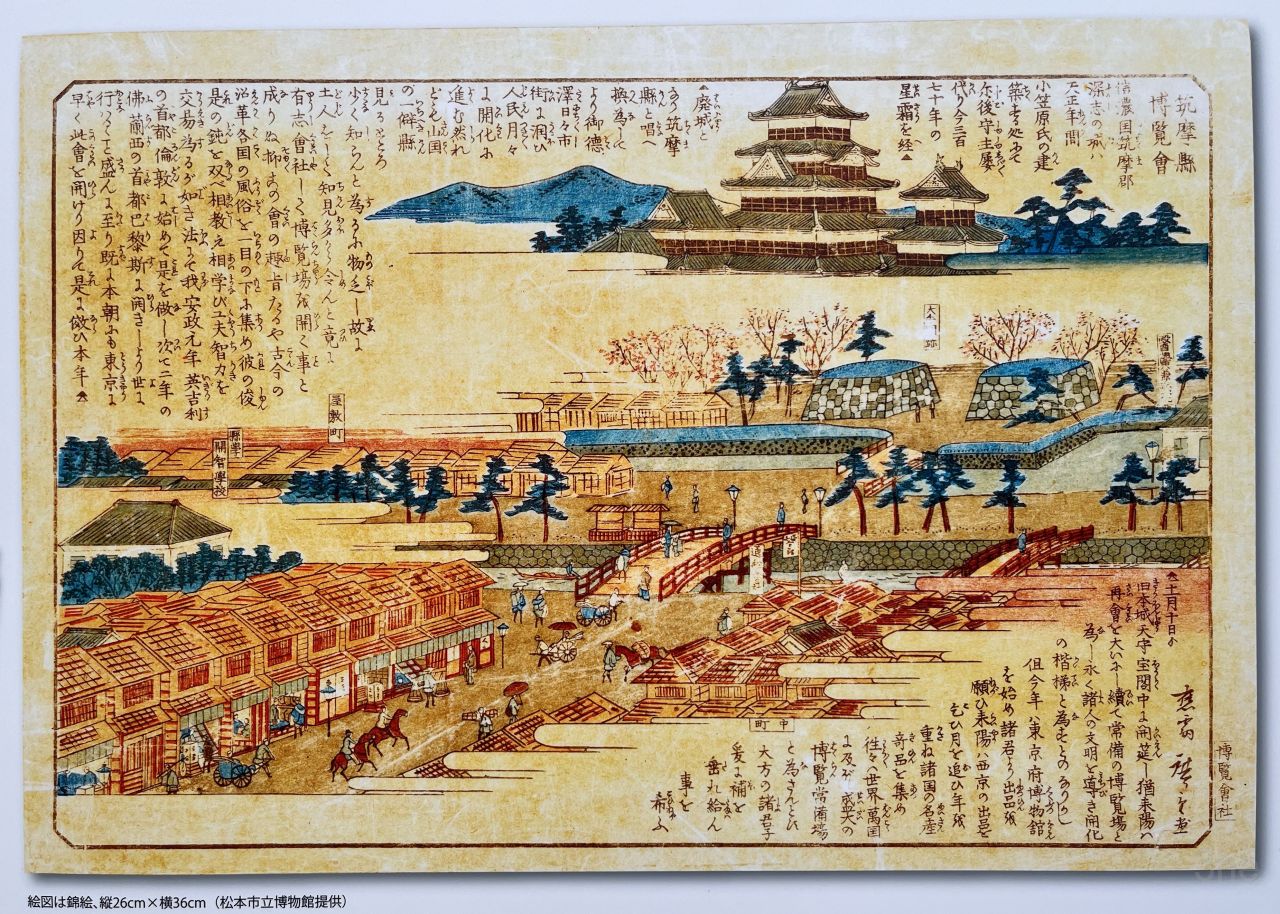 筑摩縣
博覽會
信濃国筑摩郡
深志の城ハ
天正年間
小笠原氏の建
築する処にて
其後守主屡
代り今三百
七十年の
星霜を経
廃城と
縣と唱へ
換へ為して
より御徳
澤日々市
街に潤ひ
人民月々
に開化に
進む然れ
ども山国
の一僻縣
見るところ
少く知らんと為るに物乏し故に
土人をして知見多からん令んと竟に
有志會社して博覧場を開く事と
成りぬ抑〻この會の趣旨たるや古今の
沿革各国の風俗を一目の下に集め彼の俊
是の鈍を双べ相教え相学び工夫智力を
交易為るが如き法にて我安政元年英吉利
の首都倫敦に始めて是を做し次て二年の
佛蘭西の首都巴黎斯に開きしより世に
行ハて盛んに至り既に本朝にも東京に
早く此會を開けり因りて是に倣ひ本年
縣学
開智學校
屋敷町
中町
十一月十日より
旧本城天守宝閣中に開莚し猶来陽ハ
再會を大いにし續て常備の博覧場と
為し永く諸人の文明を導き開化
の楷梯と為すとのなりし
但今年ハ東京府博物館
を始め諸君より出品を
願ひ来陽ハ西京の出品を
乞ひ月を追ひ年を
重ね諸国の名産
奇品を集め
往々世界萬国
に及び盛大の
博覧常備場
と為さんとす
大方の諸君子
爰に補を
垂れ給ん
事を
希ふ
博覧會社
絵図は錦絵、縦26cm×横36cm（松本市立博物館提供）